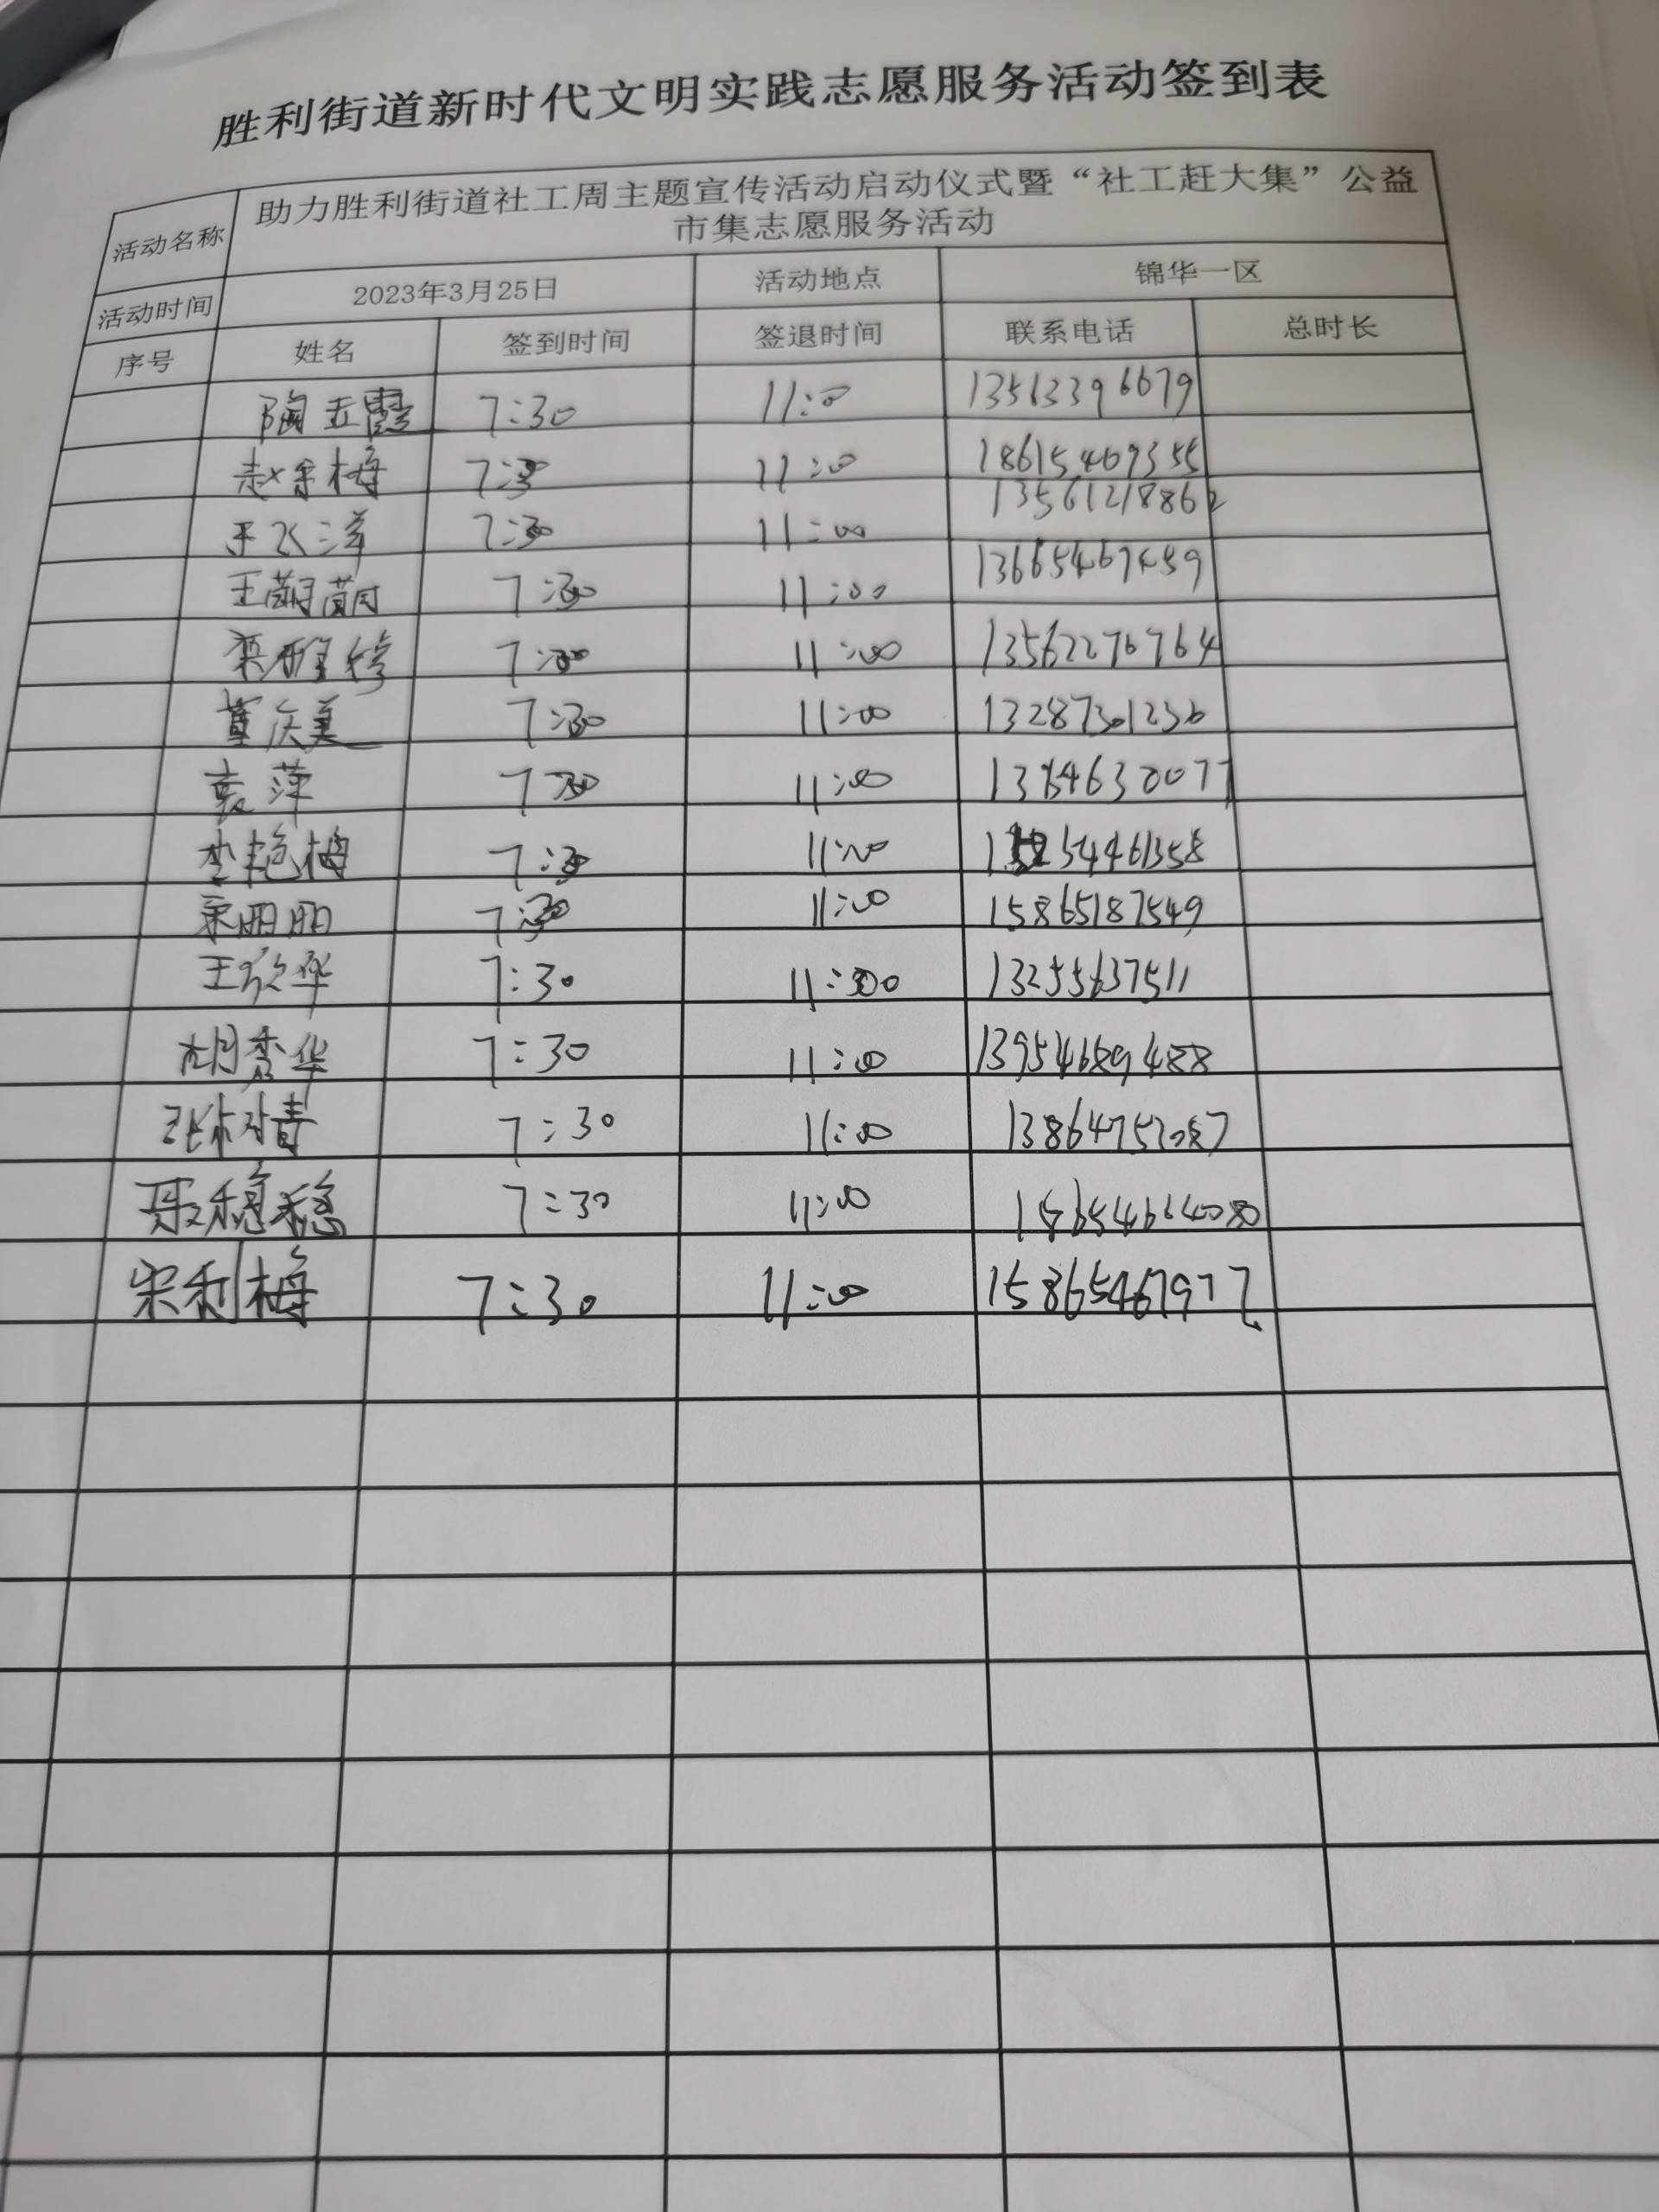 胜利街道新时代文明实践志愿服务活动签到表
活动名称 助力胜利街道社工周主题宣传活动启动仪式暨“社工赶大集”公益
市集志愿服务活动
活动时间 2023年3月25日 活动地点 锦华一区
序号 姓名 签到时间 签退时间 联系电话 总时长
陶 霞 7:30 11:00 13563396679
赵 梅 7:30 11:00 18615469355
飞洋 7:30 11:00 13561218862
王萌萌 7:30 11:00
雅 7:30 11:00 13562276764
董庆美 7:30 11:00 13287301236
袁萍 7:30 11:00
李艳梅 7:30 11:00
7:30 11:00 15865187549
王 华 7:30 11:00 13255637511
胡秀华 7:30 11:00 13954689488
张 青 7:30 11:00
聂稳稳 7:30 11:00
宋利梅 7:30 11:00 15865467977